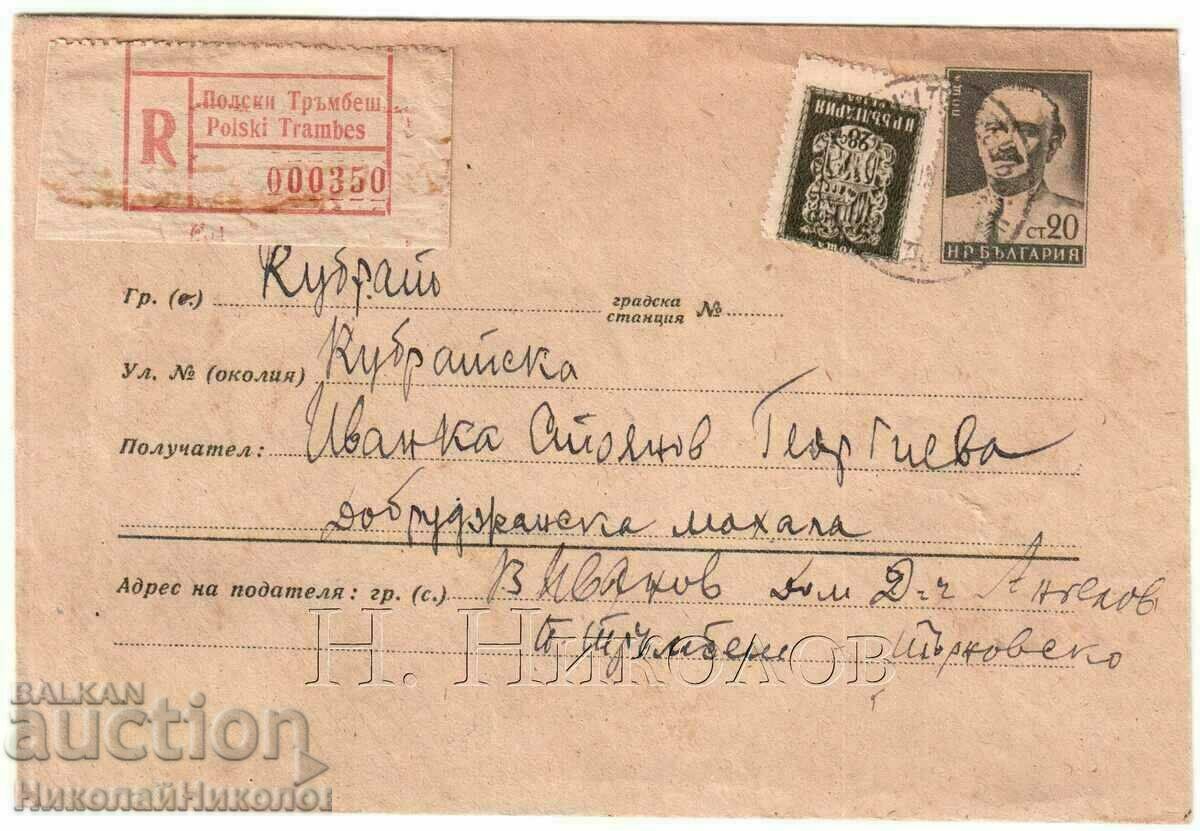 R
Полски Тръмбеш
Polski Trambes
000350
Н Р БЪЛГАРИЯ
28
ПОЩА
СТ 20
НР БЪЛГАРИЯ
Гр. (с.) Кубрат градска станция №
Ул. № (околия) Кубратска
Получател: Иванка Стоянов Георгиева
Добруджанска махала
Адрес на подателя: гр. (с.) В Иванов Дом Д-ч Ангелов
П Тръмбеш Търновско
Н. Николов
BALKAN
auction
НиколайНиколо